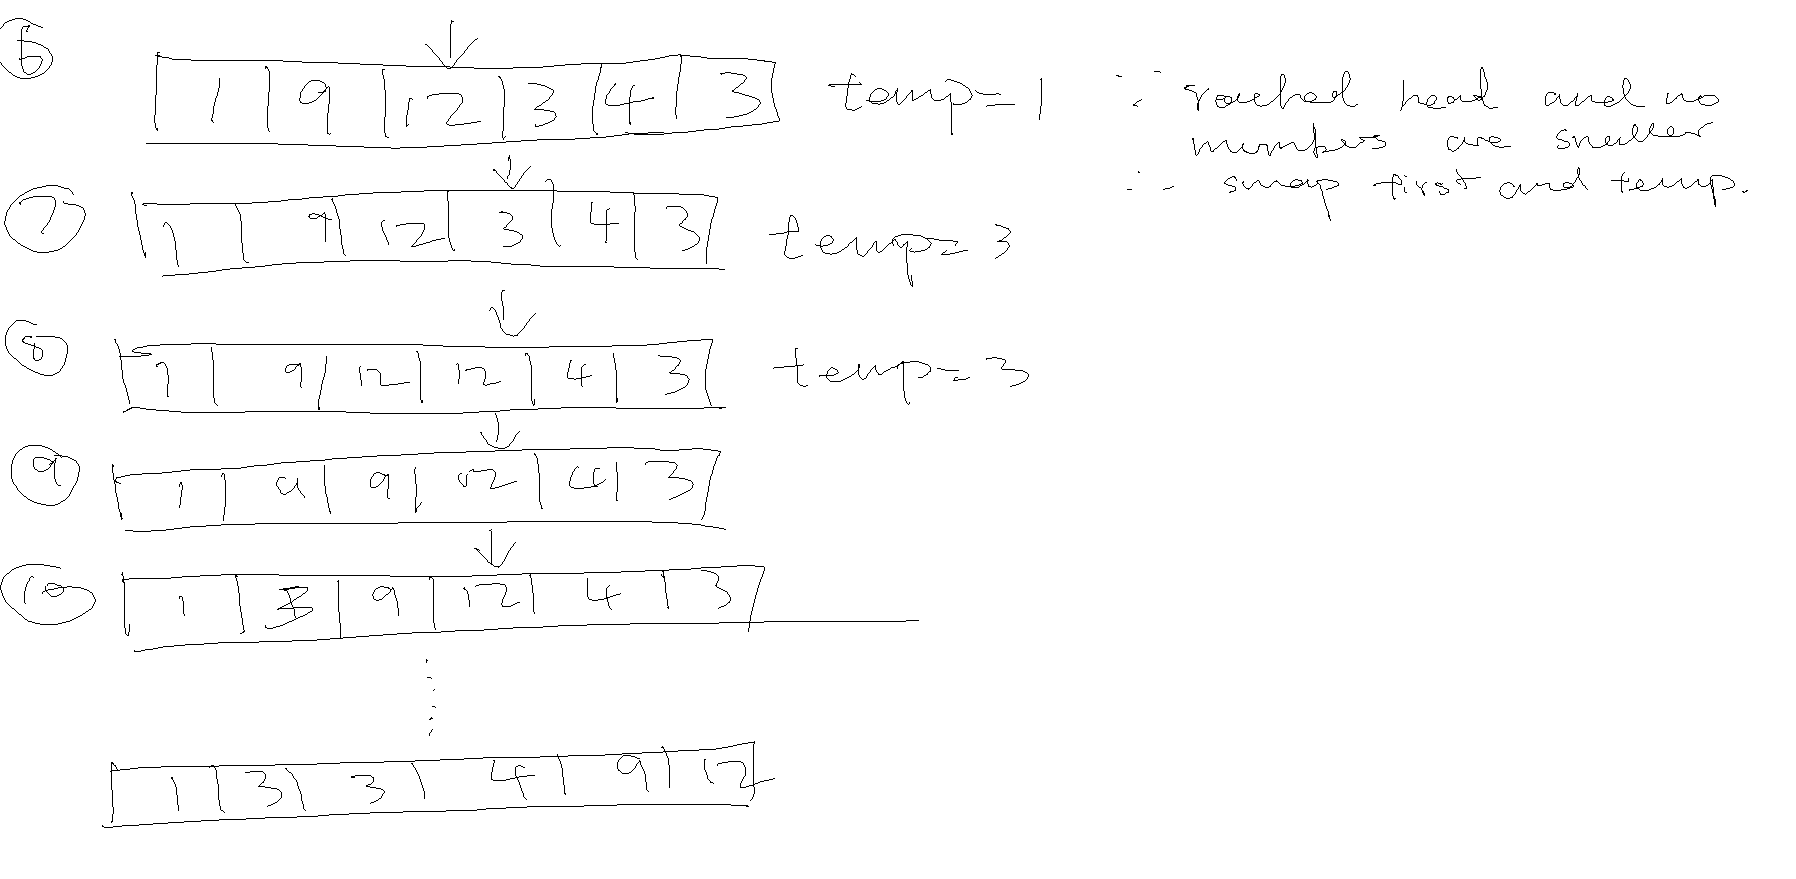 6
1 9 12 3 4 3 temp = 1 ∵ reached head and no
numbers are smaller
∴ swap first and temp.
7
1 9 12 3 4 3 temp = 3
8
1 9 12 12 4 3 temp = 3
9
1 9 9 12 4 3
10
1 3 9 12 4 3
1 3 3 4 9 12